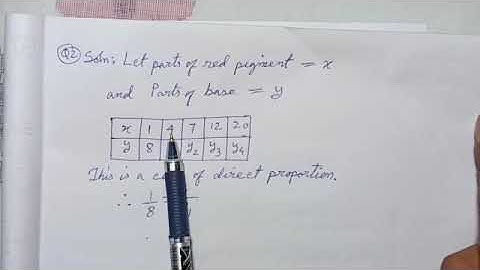 Q2 Soln: Let parts of red pigment = x
and Parts of base = y
x 1 4 7 12 20
y 8 y2 y3 y4
This is a of direct proportion.
∴ 1/8